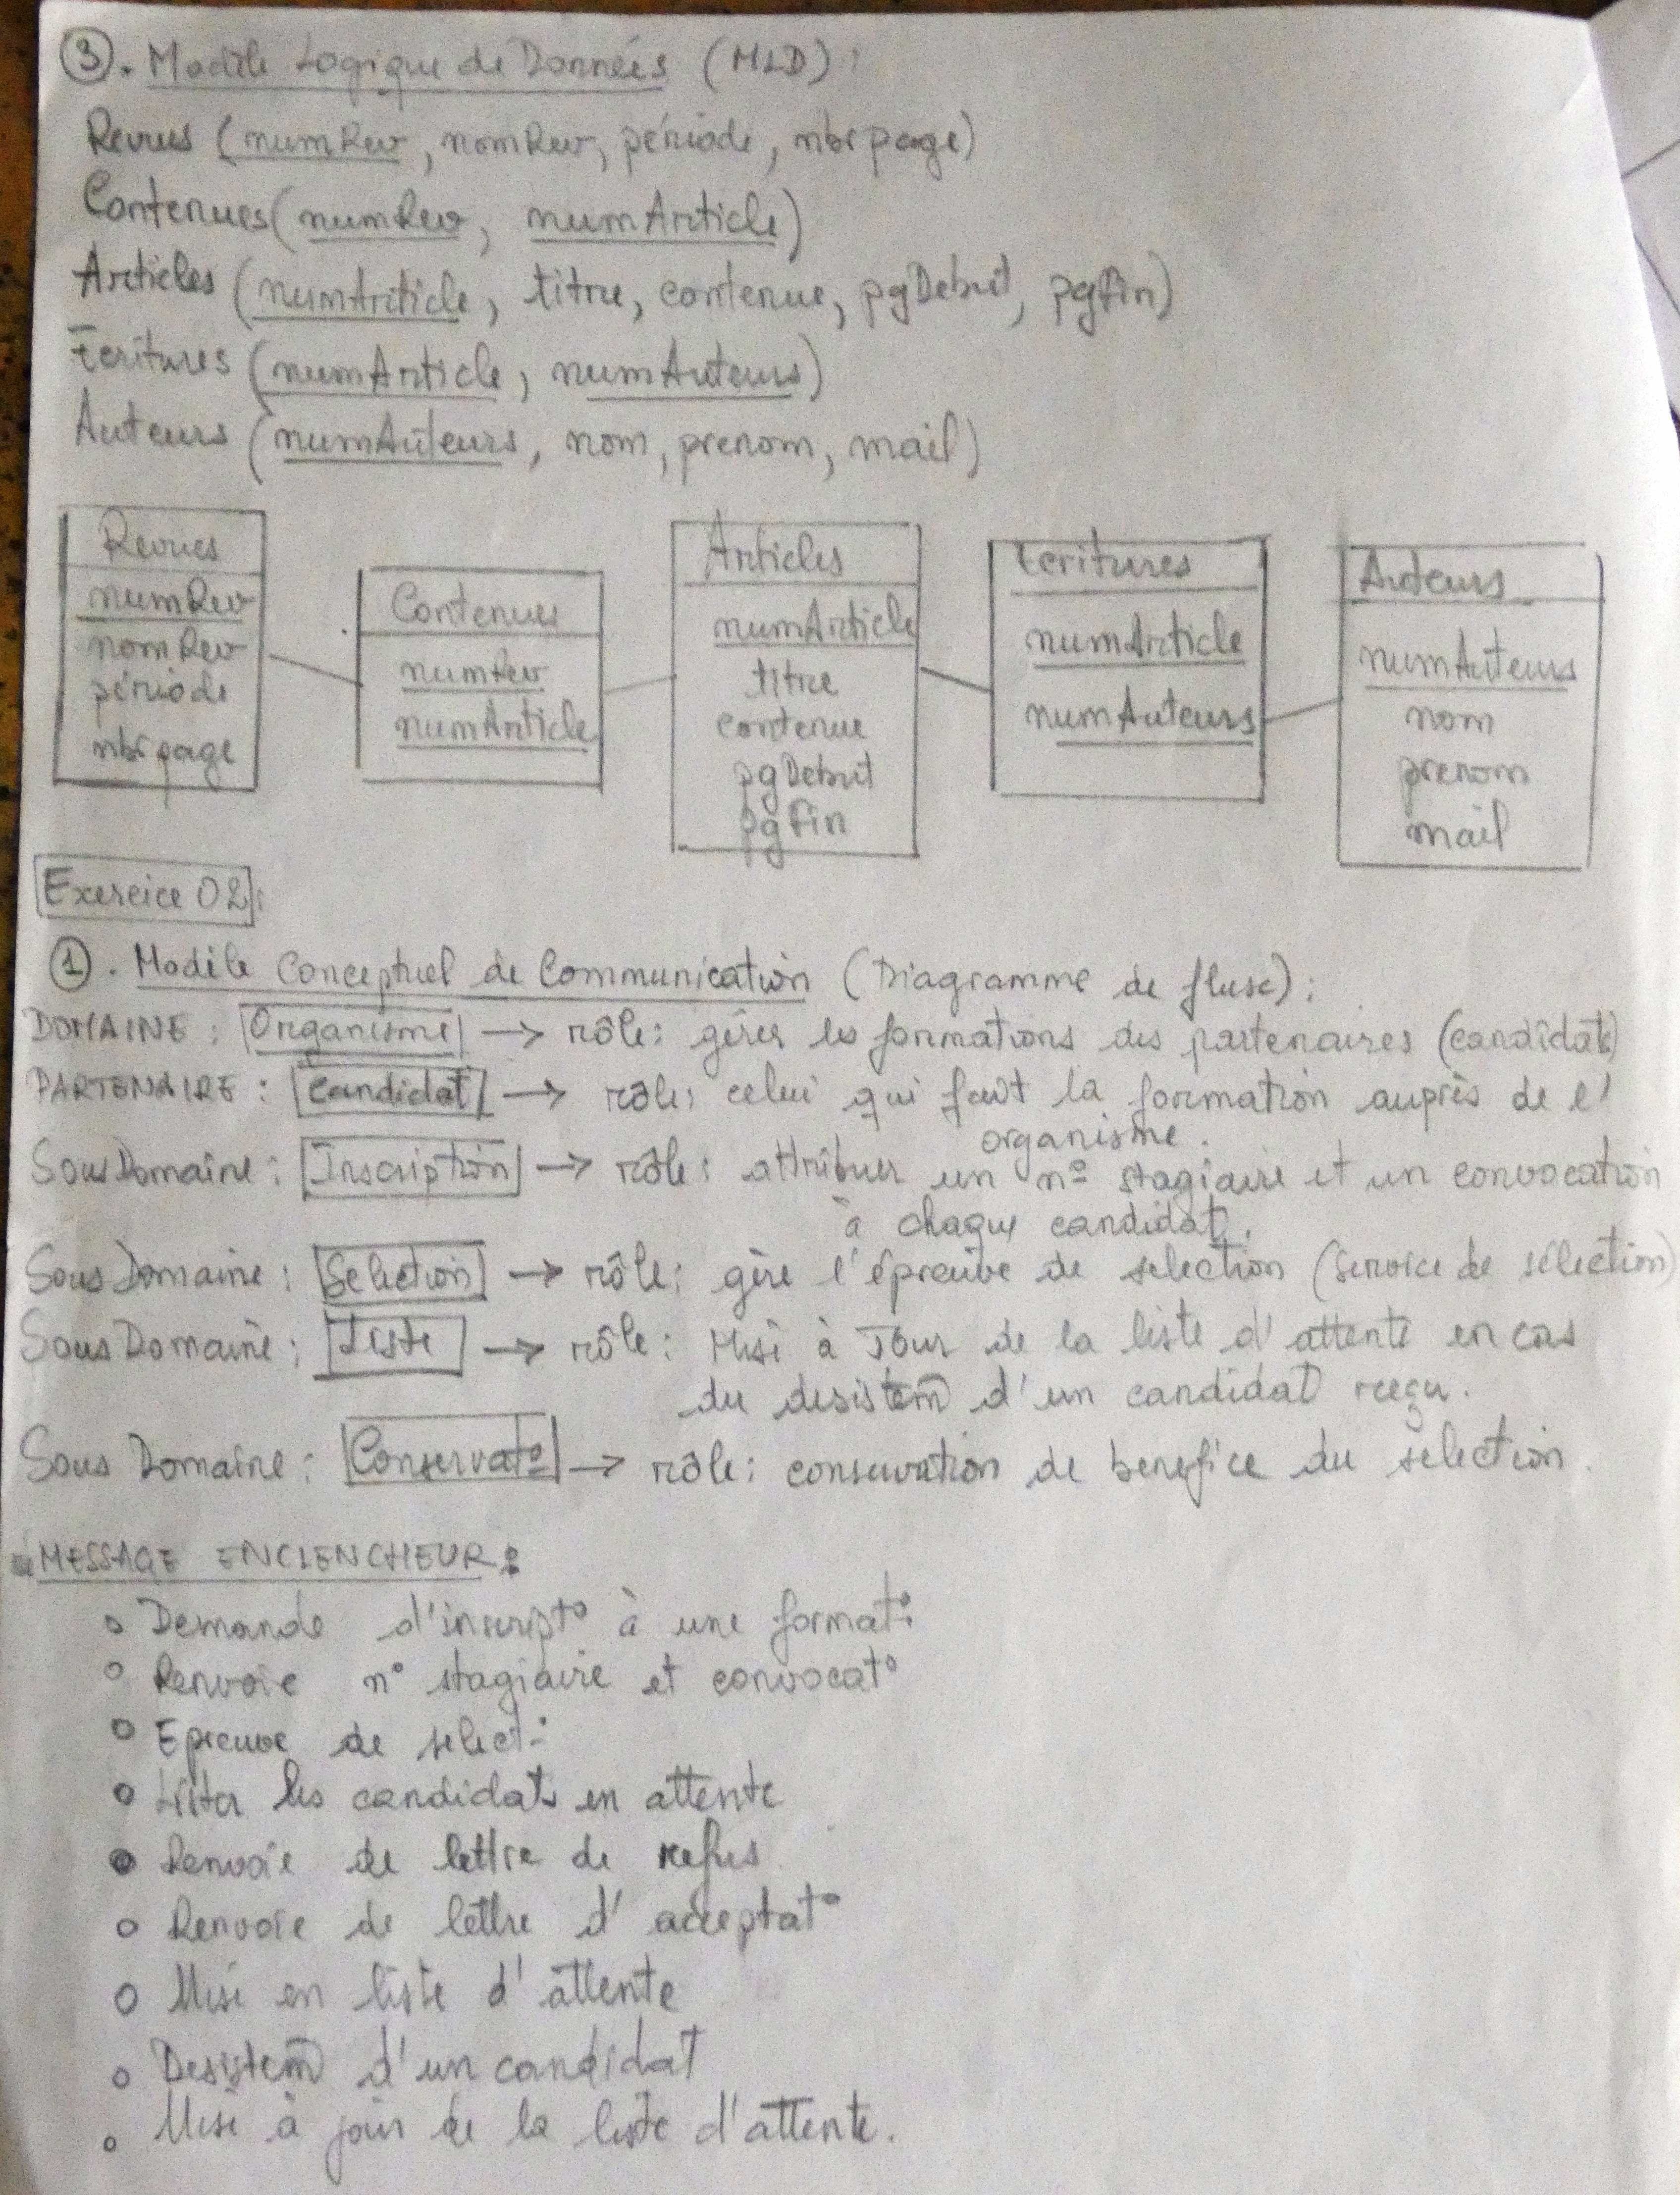 3. Modèle Logique de Données (MLD) :
Revues (numRev, nomRev, période, nbrpage)
Contenues (numRev, numArticle)
Articles (numArticle, titre, contenue, pgDebut, pgFin)
Ecritures (numArticle, numAuteurs)
Auteurs (numAuteurs, nom, prenom, mail)
Revues
numRev
nomRev
période
nbrpage
Contenues
numRev
numArticle
Articles
numArticle
titre
contenue
pgDebut
pgFin
Ecritures
numArticle
numAuteurs
Auteurs
numAuteurs
nom
prenom
mail
Exercice 02 :
1. Modèle Conceptuel de Communication (Diagramme de flux) :
DOMAINE : Organisme → rôle : gérer les formations des partenaires (candidats)
PARTENAIRE : Candidat → rôle : celui qui fait la formation auprès de l'
organisme.
Sous Domaine : Inscription → rôle : attribuer un n° stagiaire et un convocation
à chaque candidat.
Sous Domaine : Selection → rôle : gère l'épreuve de selection (Service de sélection)
Sous Domaine : Liste → rôle : Mise à Jour de la liste d'attente en cas
du desistem̄ d'un candidat reçu.
Sous Domaine : Conservat° → rôle : conservation de benefice du selection.
MESSAGE ENCLENCHEUR :
o Demande d'inscript° à une format°
o Renvoie n° stagiaire et convocat°
o Epreuve de select°
o Lister les candidats en attente
o Renvoie de lettre de refus
o Renvoie de lettre d'acceptat°
o Mise en liste d'attente
o Desistem̄ d'un candidat
o Mise à jour de la liste d'attente.